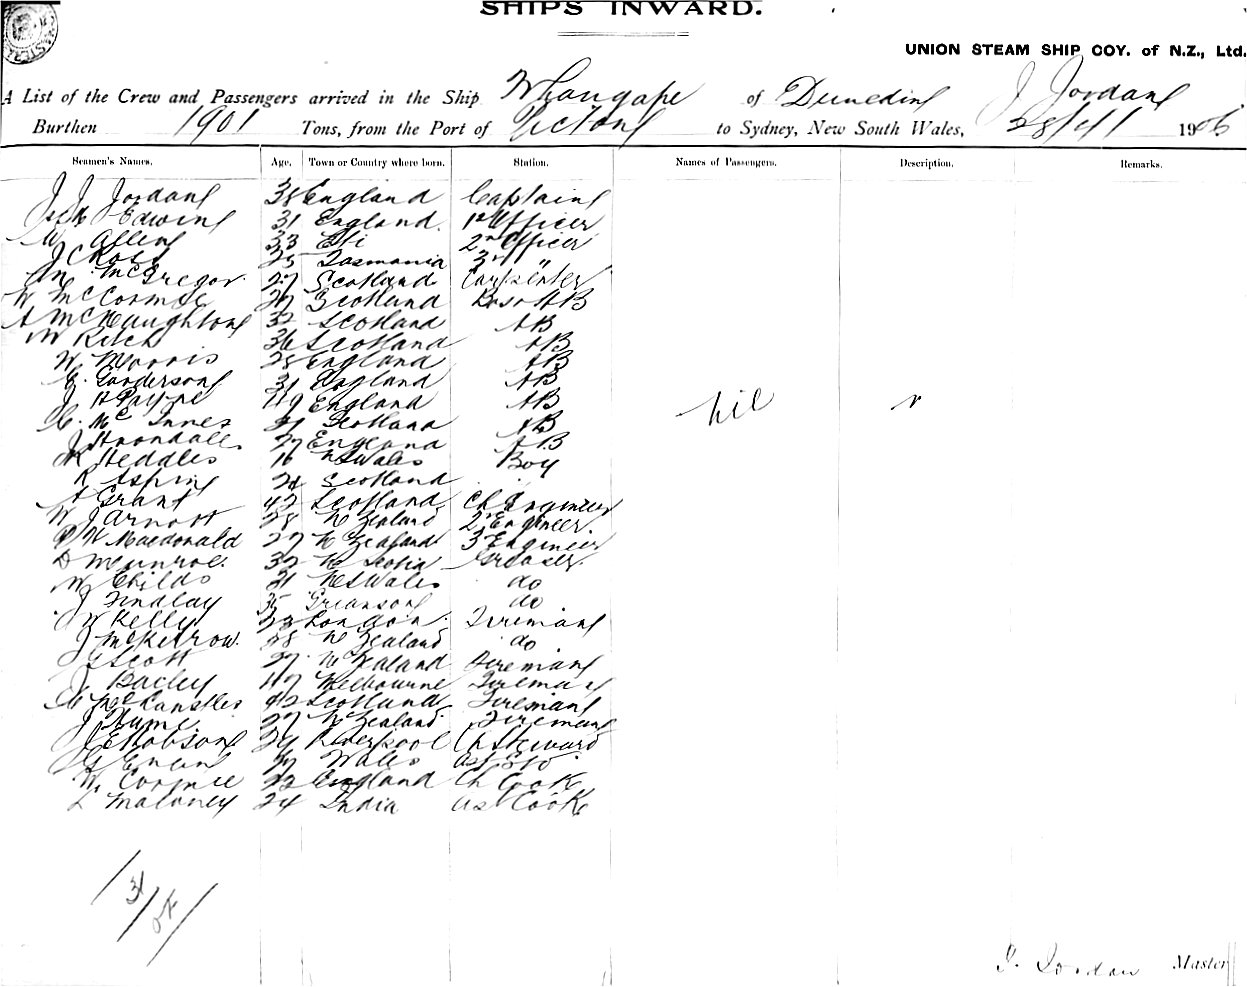 SHIPS INWARD.
UNION STEAM SHIP COY. of N.Z., Ltd.
A List of the Crew and Passengers arrived in the Ship Whangape of Dunedin J Jordan
Burthen 1901 Tons, from the Port of to Sydney, New South Wales, 28/4/ 1906
Seamen's Names. Age. Town or Country where born. Station. Names of Passengers. Description. Remarks.
J J Jordan 38 England Captain
Edwin 31 England. 1st Officer
W Allen 33 2nd Officer
J C Ross 25 Tasmania 3rd "
McGregor 27 Scotland Carpenter
W McCormac 27 Scotland AB
A McNaughton 32 Scotland AB
W Ritch 36 Scotland AB
W. Morris 28 England AB
Gunderson 31 England AB
J H Payne 49 England AB
C. McInnes 21 Scotland AB
J 27 England AB
Heddles 16 NSWales Boy
R Aspin 24 Scotland
A Grant 42 Scotland Ch Engineer
W J Arnott 28 N Zealand 2nd Engineer
W Macdonald 27 N Zealand 3 Engineer
D Munroe. 32 N Scotia Greaser.
W Childs 21 NSWales do
J Findlay 35 do
W Kelly 23 London. Fireman
J McKerrow. 28 N Zealand do
Scott 27 N Zealand Fireman
J Bailey 47 Melbourne Fireman
McCanstles 42 Scotland Fireman
J Hume. 27 N Zealand. Fireman
J E Robson 24 Liverpool Ch Steward
G Wales
W. 22 England Ch Cook
L Maloney 24 India Ast Cook
nil
31
J. Jordan Master